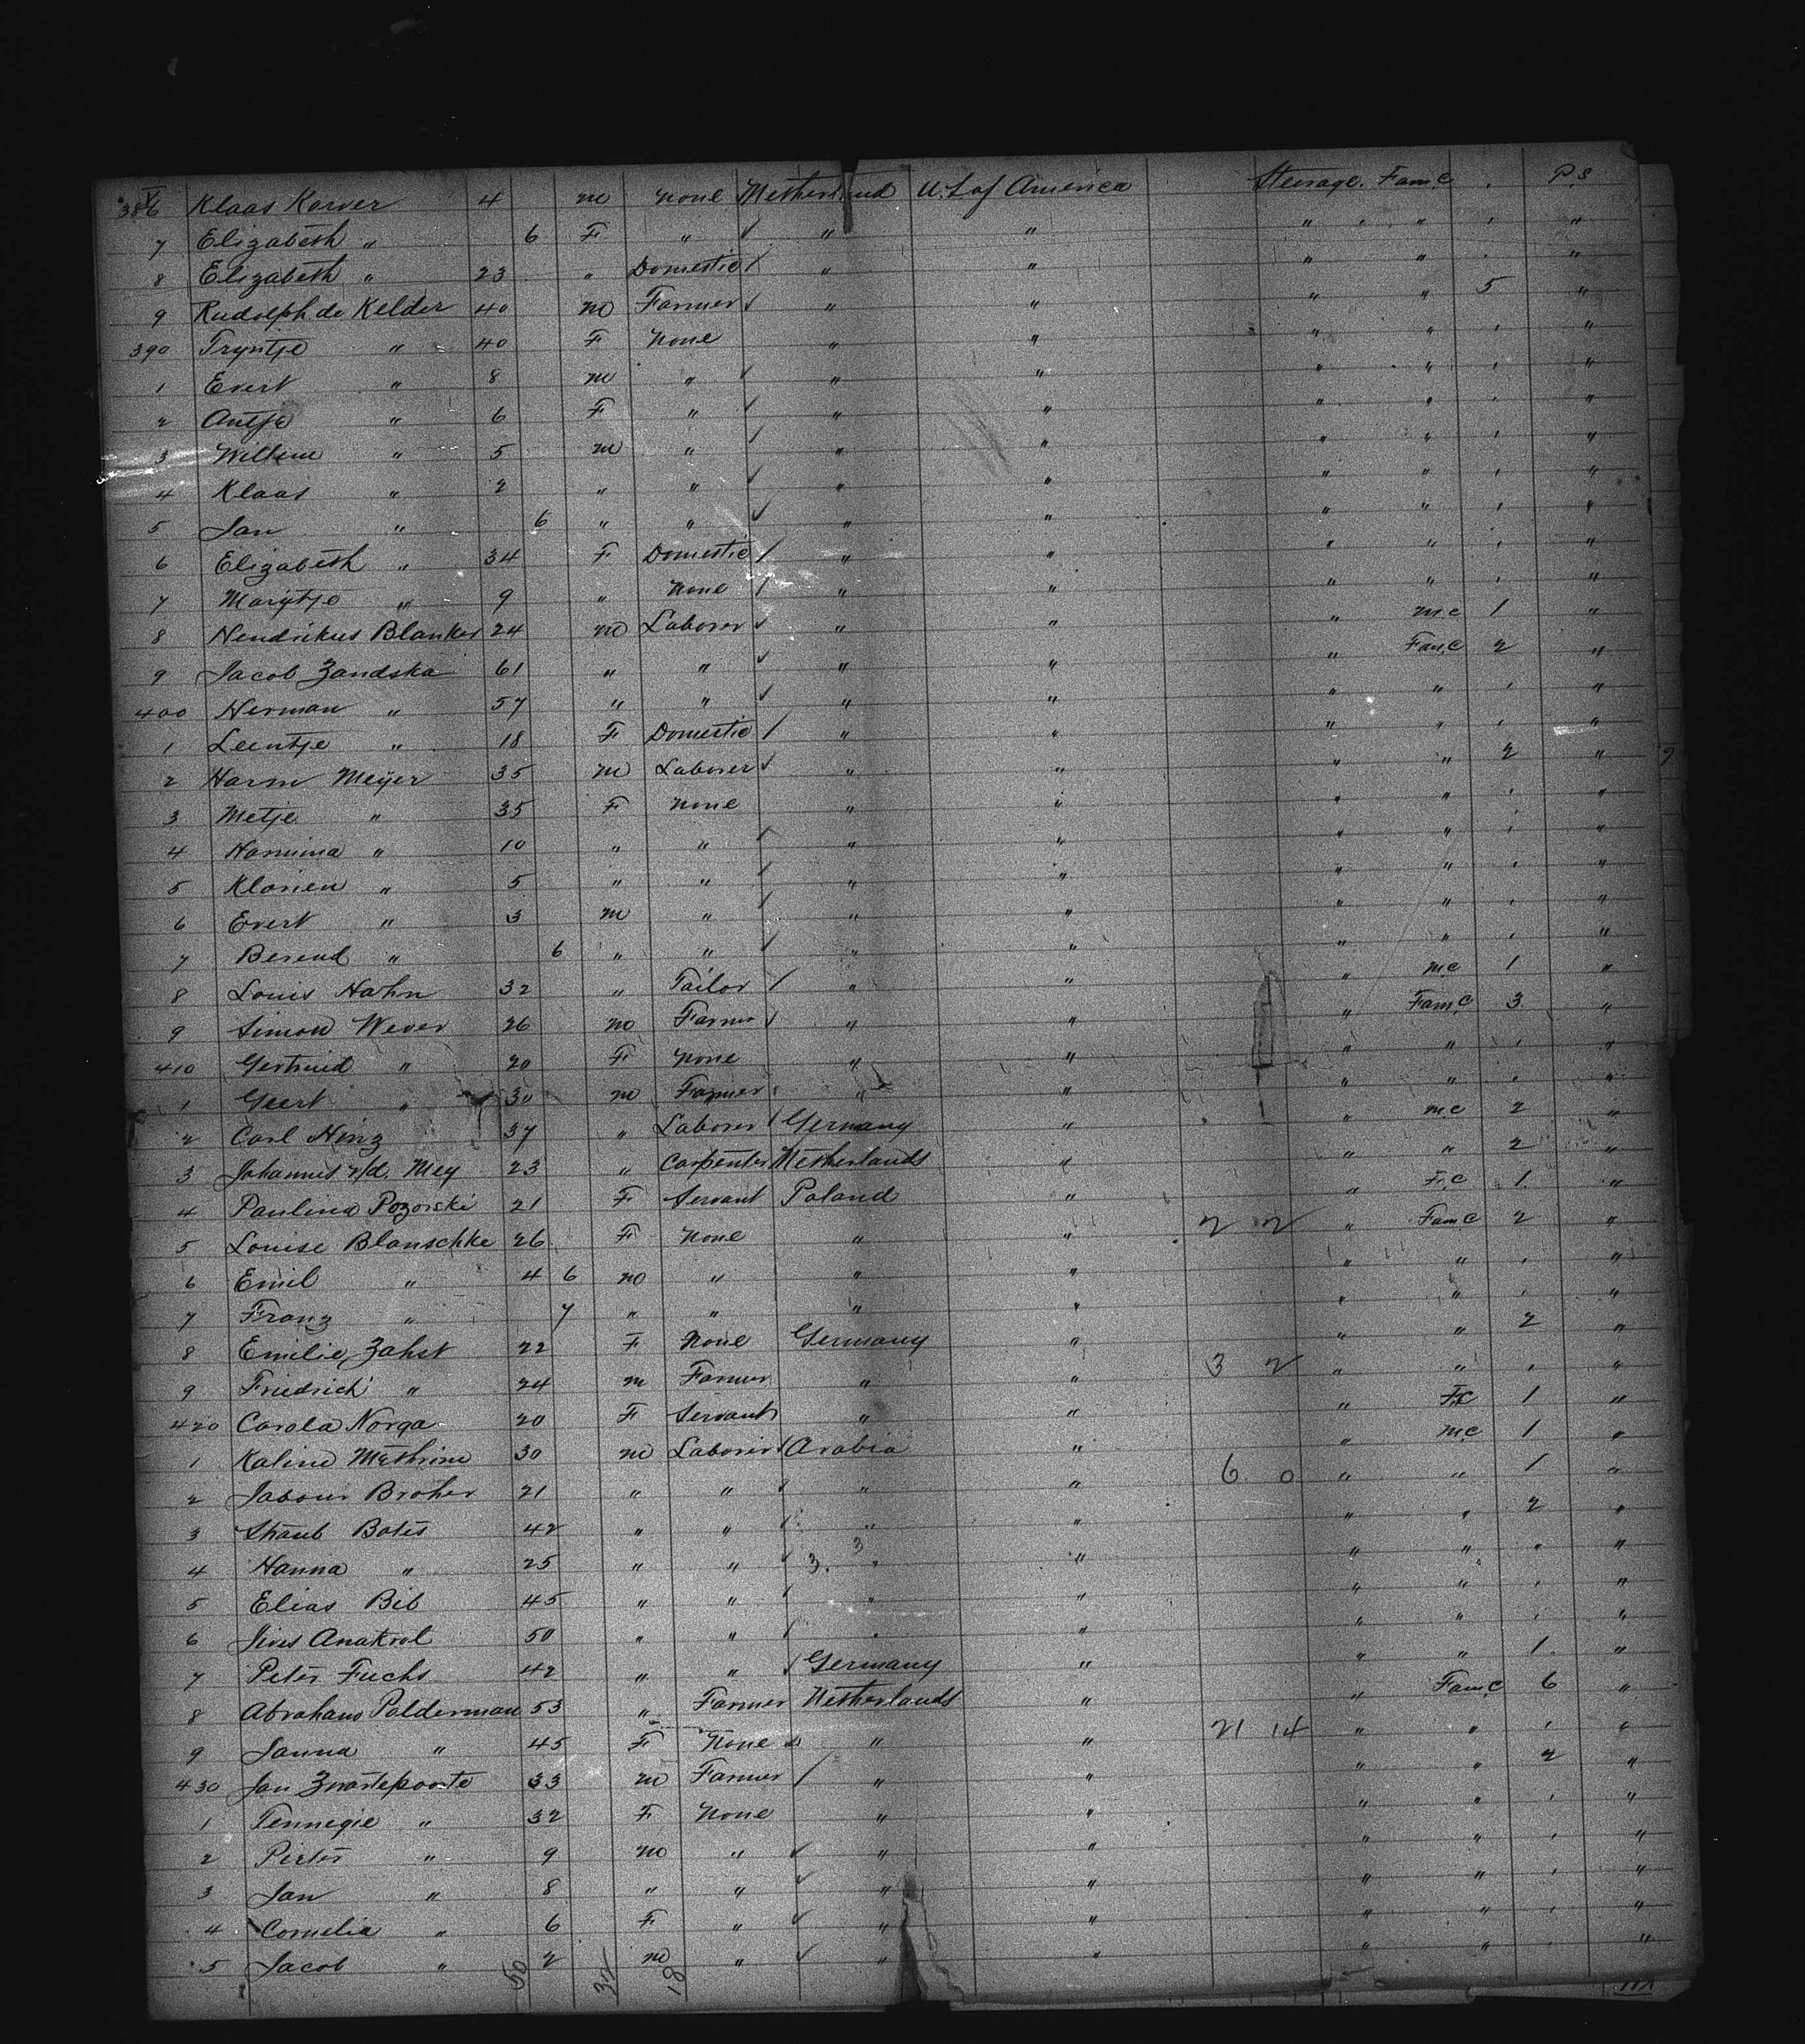 386 Klaas Korver 4 m none Netherland U.S of America Steerage. Fam.c P.S
7 Elizabeth " 6 F " " " " " "
8 Elizabeth " 23 " Domestic " " " " "
9 Rudolph de Kelder 40 m Farmer " " " " 5 "
390 Tryntje " 40 F none " " " " "
1 Evert " 8 m " " " " " "
2 Antje " 6 F " " " " " "
3 Willem " 5 m " " " " " "
4 Klaas " 2 " " " " " " "
5 Jan " 6 " " " " " " "
6 Elizabeth " 34 F Domestic " " " " "
7 Marijtje " 9 " none " " " " "
8 Hendrikus Blanker 24 m Laborer " " " m.c 1 "
9 Jacob Zandska 61 " " " " " Fam.c 2 "
400 Herman " 57 " " " " " " "
1 Leentje " 18 F Domestic " " " " "
2 Harm Meijer 35 m Laborer " " " " 2 "
3 Metje " 35 F none " " " " "
4 Harmina " 10 " " " " " " "
5 Klasien " 5 " " " " " " "
6 Evert " 3 m " " " " " "
7 Berend " 6 " " " " " " "
8 Louis Hahn 32 " Tailor " " " m.c 1 "
9 Simon Wever 26 m Farmer " " " Fam.c 3 "
410 Gertruid " 20 F none " " " " "
1 Geert " 30 m Farmer " " " " "
2 Carl Hinz 37 " Laborer Germany " " m.c 2 "
3 Johannes v/d. Mey 23 " Carpenter Netherlands " " " 2 "
4 Paulina Pozorski 21 F Servant Poland " " F.c 1 "
5 Louise Blanschke 26 F none " " 2 2 " Fam.c 2 "
6 Emil " 4 6 m " " " " " "
7 Franz " 7 " " " " " " "
8 Emilie Zahst 22 F None Germany " " " 2 "
9 Friedrich " 24 m Farmer " " 3 2 " " "
420 Carola Norga 20 F Servant " " " F.C 1 "
1 Kaline Methrine 30 m Laborer Arabia " " m.c 1 "
2 Jabour Broher 21 " " " " 6 0 " " 1 "
3 Staub Botes 42 " " " " " " 2 "
4 Hanna " 25 " " 3. 3 " " " " "
5 Elias Bib 45 " " " " " " "
6 Anakrol 50 " " " " " " "
7 Peter Fuchs 42 " " Germany " " " 1 "
8 Abraham Polderman 53 " Farmer Netherlands " " Fam.c 6 "
9 Janna " 45 F None " " 21 14 " " "
430 Jan Zwartepoorte 33 m Farmer " " " " 2 "
1 Tennegie " 32 F none " " " " "
2 Pieter " 9 m " " " " " "
3 Jan " 8 " " " " " " "
4 Cornelia " 6 F " " " " " "
5 Jacob " 2 m " " " " " "
50 32 18